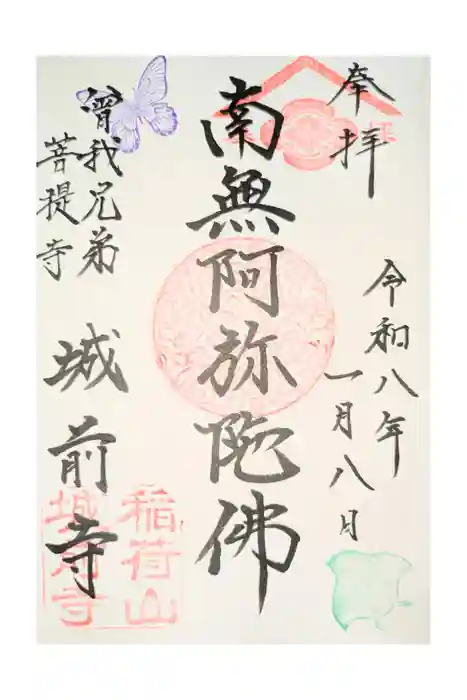 奉拝
令和八年
一月八月
南無阿弥陀佛
曾我兄弟
菩提寺
城前寺
稲荷山
城前寺